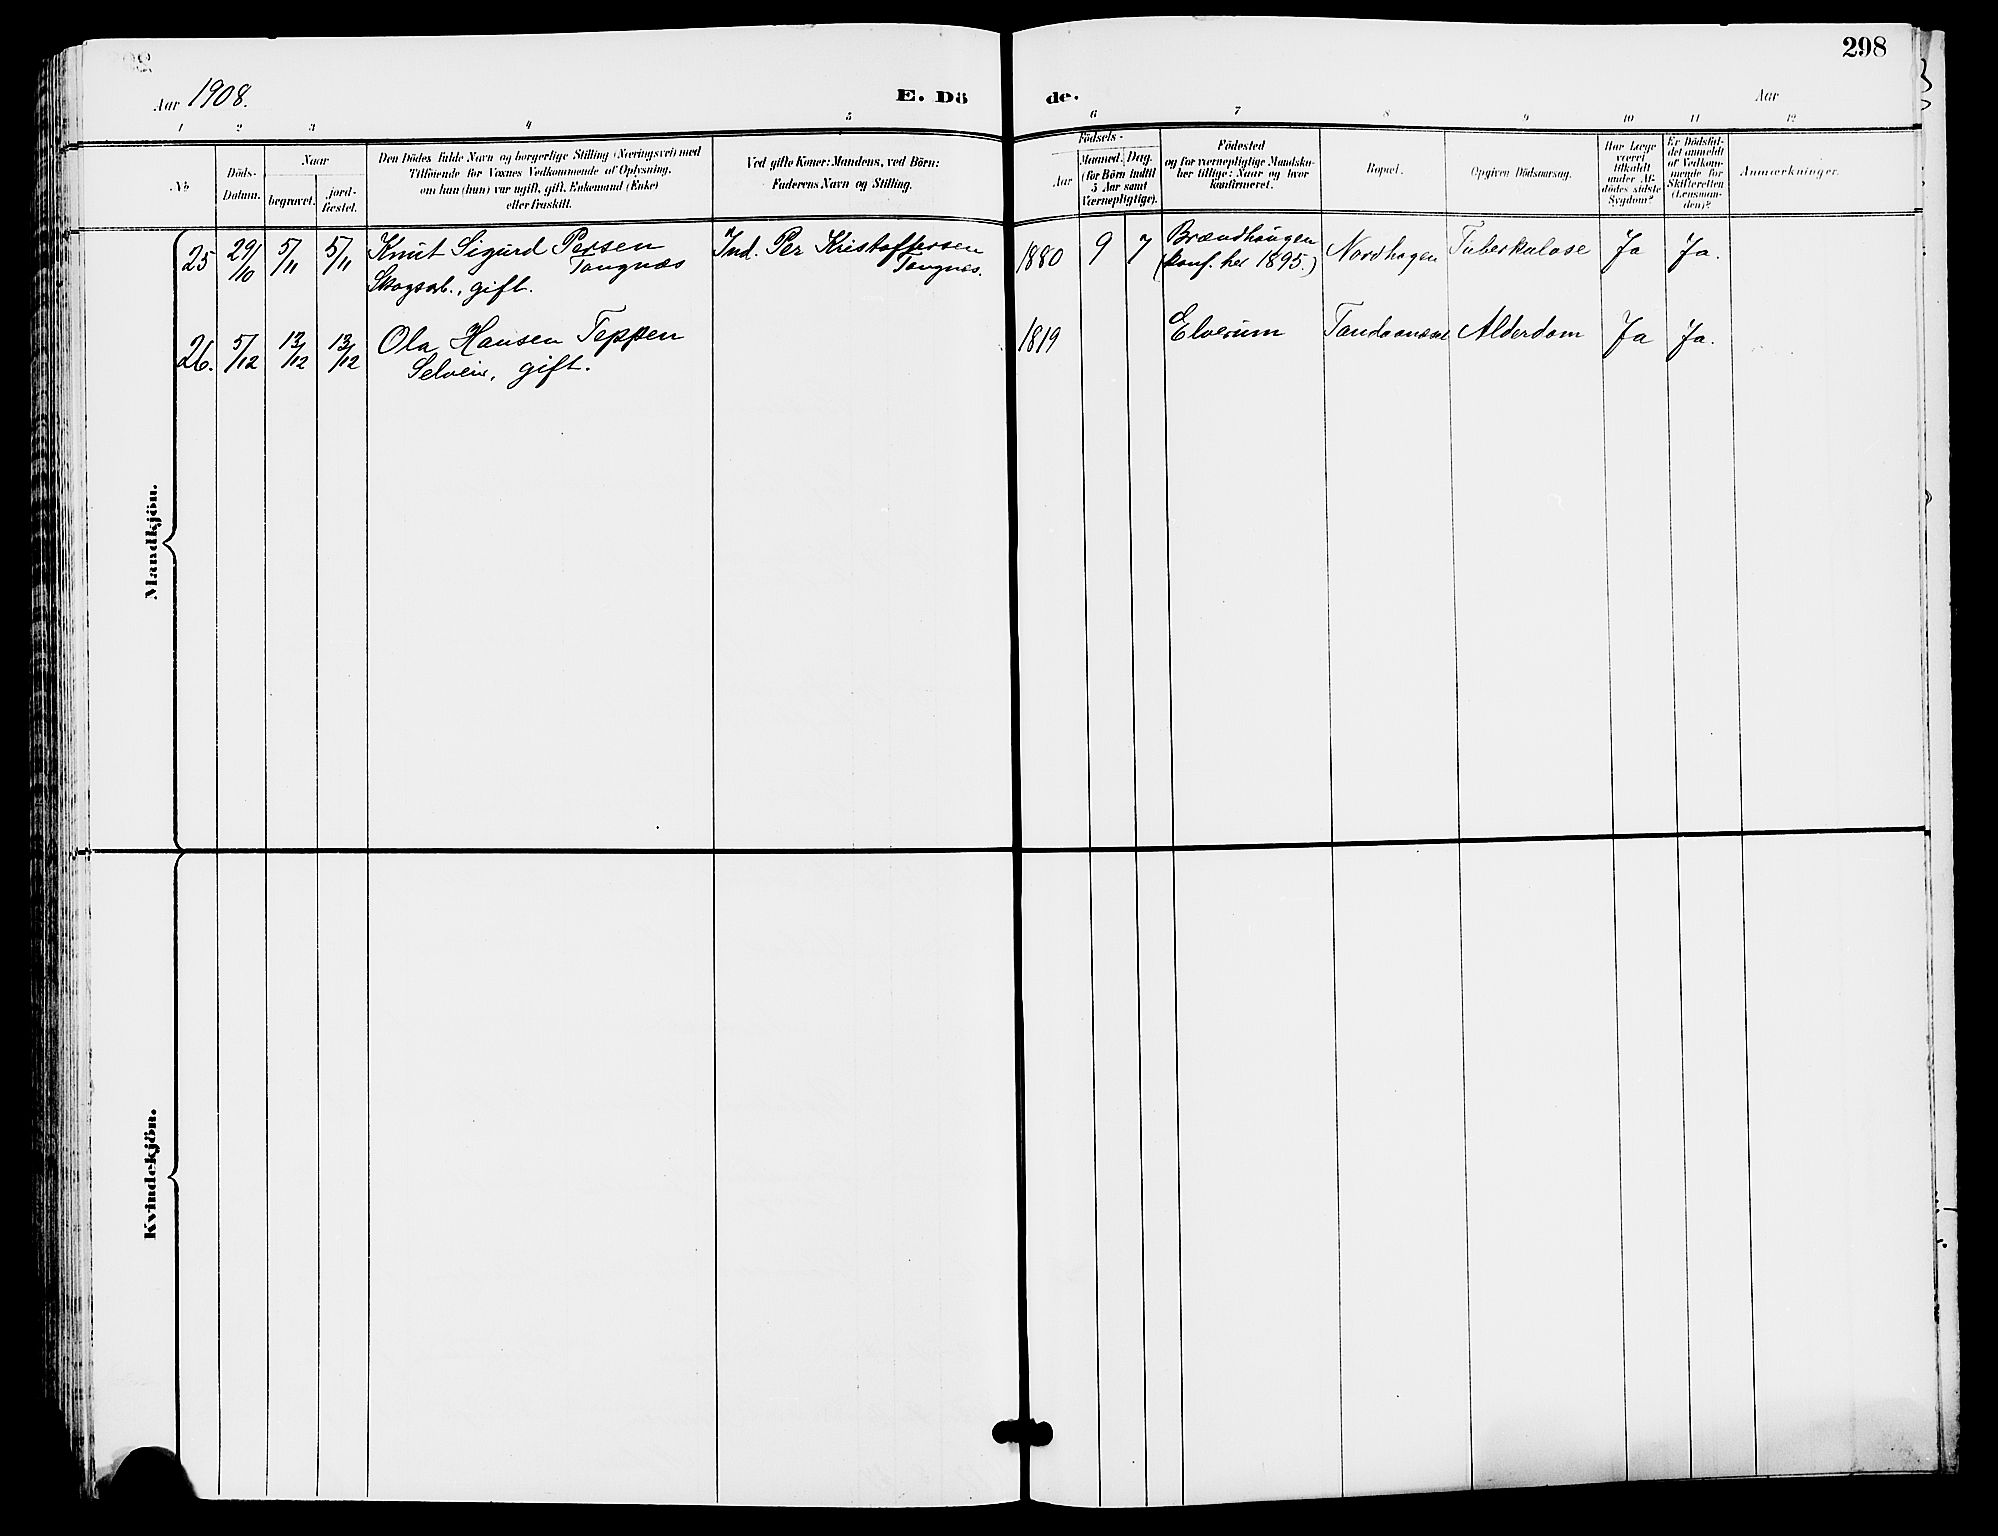 298
Aar 1908.
E. Dö
de.
Aar
1 2 3 4 5 6 7 8 9 10 11 12
No
Döds-
Datum.
Naar
begravet.
jord-
fæstet.
Den Dödes fulde Navn og borgerlige Stilling (Næringsvei) med
Tilföiende for Voxnes Vedkommende af Oplysning,
om han (hun) var ugift, gift, Enkemand (Enke)
eller fraskilt.
Ved gifte Koner: Mandens, ved Börn:
Faderens Navn og Stilling.
Födsels-
Aar
Maaned. Dag.
(for Börn indtil
5 Aar samt
Værnepligtige).
Födested
og for værnepligtige Mandskaber
tillige: Naar og hvor
konfirmeret.
Bopæl.
Opgiven Dödsaarsag.
Har Læge
været
tilkaldt
under Afdödes
sidste
Sygdom?
Er Dödsfaldet
anmeldt
af Vedkommende
for
Skifteretten
(Lensmanden)?
Anmærkninger.
Mandkjön.
25 29/10 5/11 5/11 Knut Sigurd Persen Ind. Per Kristoffersen 1880 9 7 Brændhaugen Nordhagen Tuberkulose Ja Ja.
Tangnæs Tangnæs. (konf. her 1895.)
Skogsarb., gift.
26. 5/12 13/12 13/12 Ola Hansen Teppen 1819 Elverum Alderdom Ja Ja.
Selveier, gift.
Kvindekjön.